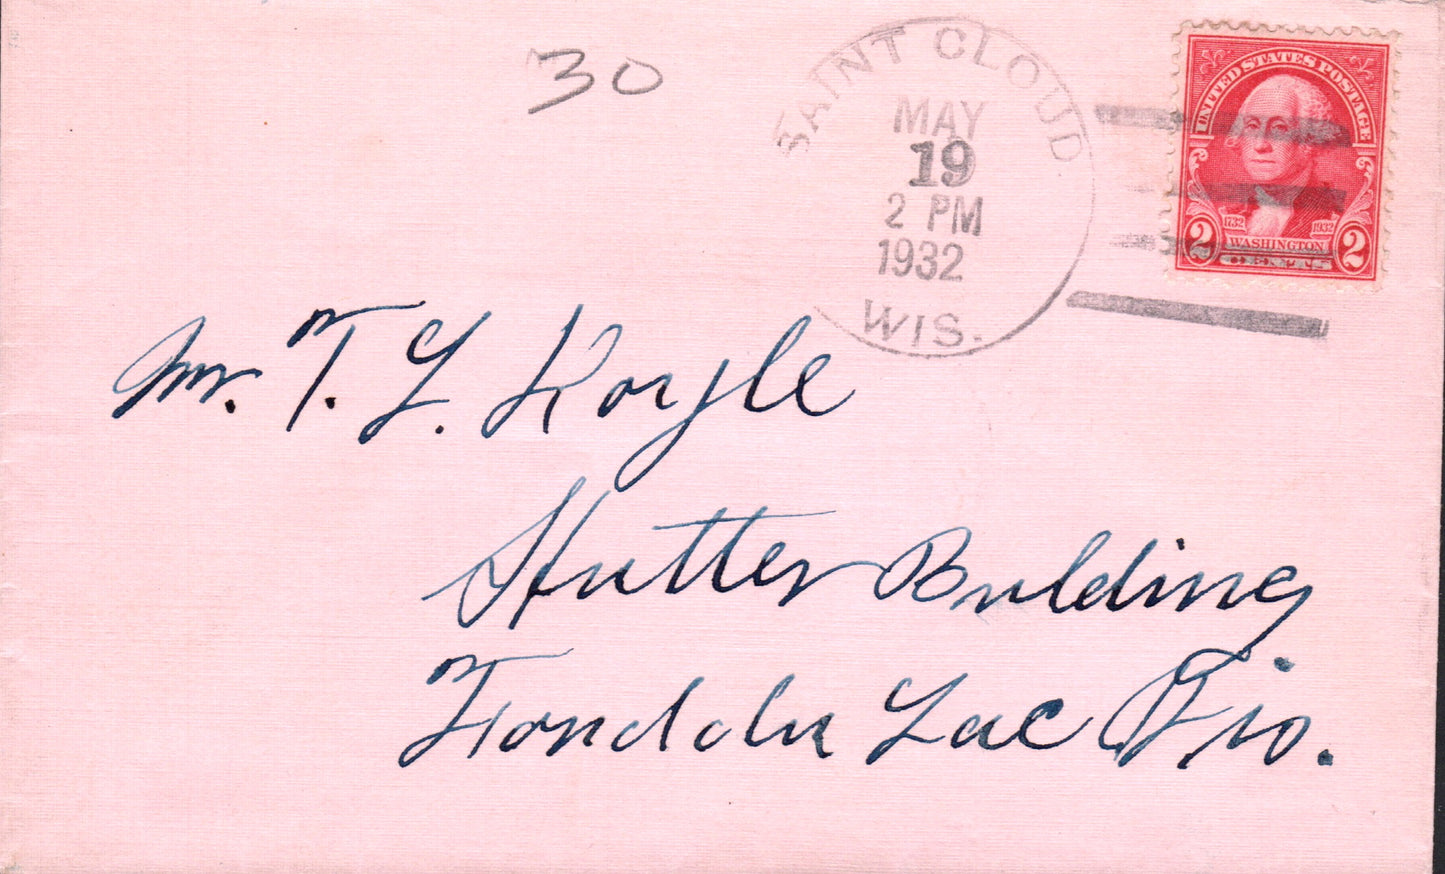 30
SAINT CLOUD
MAY
19
2 PM
1932
WIS.
UNITED STATES POSTAGE
1732 1932
2 WASHINGTON 2
Mr. T. L. Doyle
Hutter Building
Fond du Lac Wis.